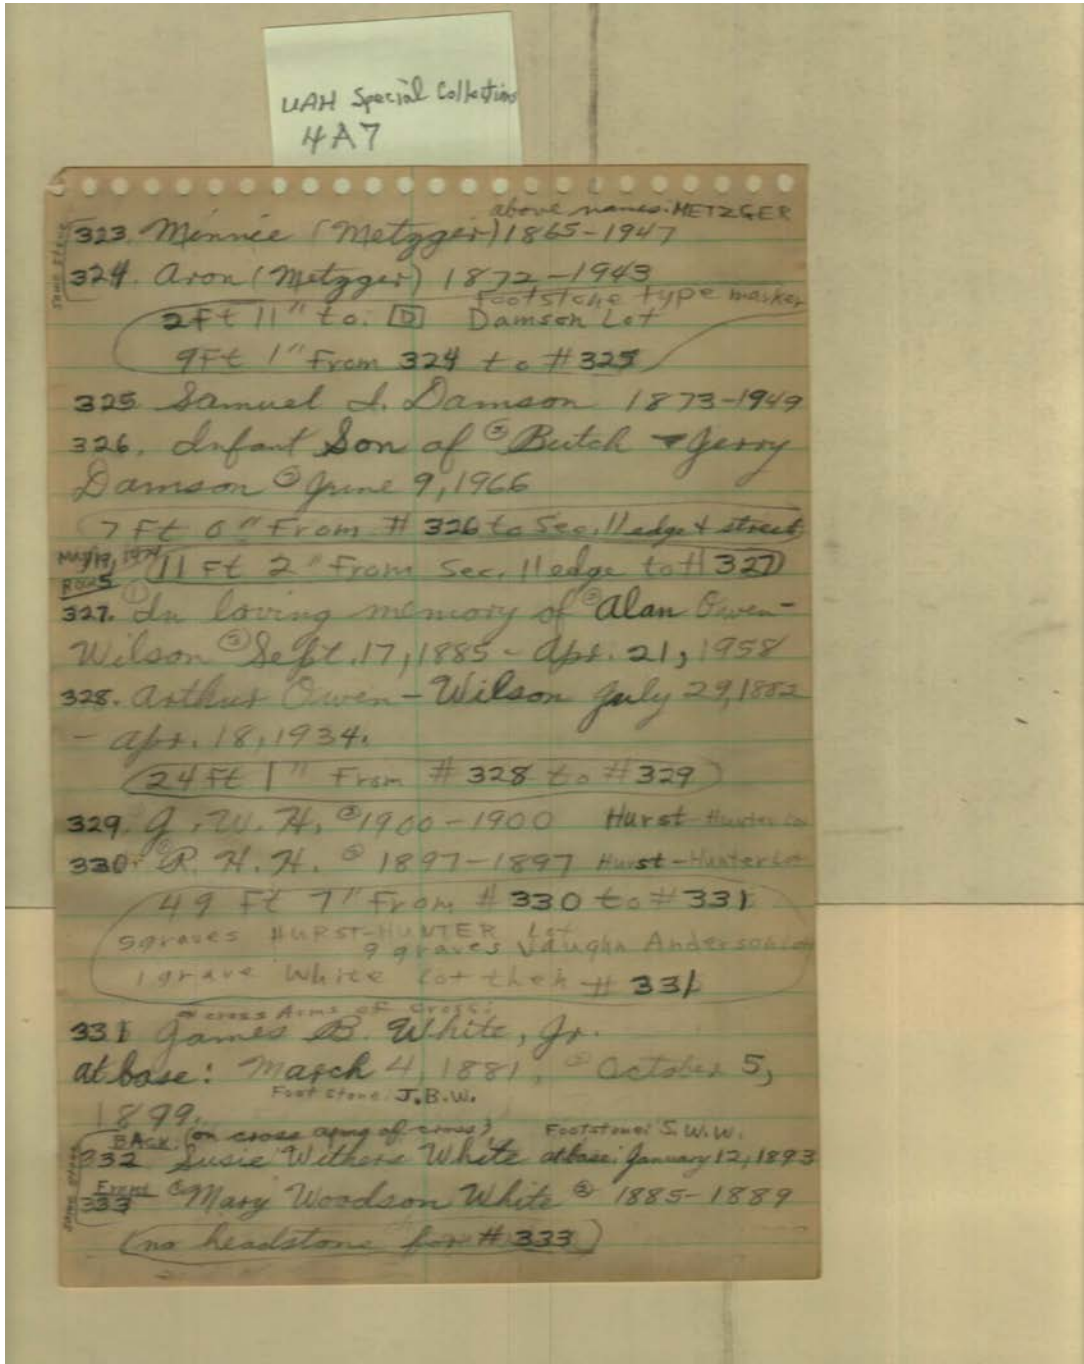 UAH Special Collections
4A7
above names: METZGER
SAME STONE
323. Minnie (Metzger) 1865-1947
324. Aron (Metzger) 1872-1943
Footstone type marker
2Ft 11" to. D Damson Lot
9Ft 1" From 324 to #325
325 Samuel I. Damson 1873-1949
326. Infant Son of ② Butch & Gerry
Damson ③ June 9, 1966
7 Ft 0" From #326 to Sec. 11 edge & street
MAY 19, 1974
11 Ft 2" From Sec. 11 edge to #327
ROW 5
327. ① In loving memory of ② Alan Owen-
Wilson ③ Sept. 17, 1885 - Apr. 21, 1958
328. Arthur Owen-Wilson July 29, 1882
- Apr. 18, 1934.
24 Ft 1" From #328 to #329
329. G. W. H. ② 1900-1900 Hurst-Hunter Lot
330. ① R. H. H. ② 1897-1897 Hurst-Hunter Lot
49 Ft 7" From #330 to #331
5 graves HURST-HUNTER Lot
9 graves Vaughn Anderson Lot
1 grave White Lot then #331
across Arms of Cross:
331 James B. White, Jr.
at base: March 4, 1881, ② October 5,
Foot stone: J.B.W.
1899.
BACK: (on cross arms of cross) Footstone: S.W.W.
332 Susie Withers White at base: January 12, 1893
SAME STONE
Front
333 ① Mary Woodson White ② 1885-1889
(no headstone for #333)